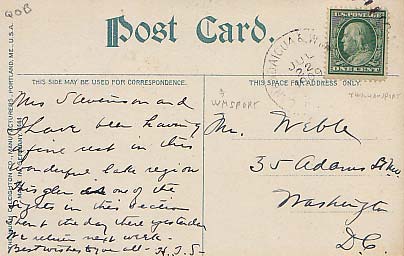 Post Card.
THIS SIDE MAY BE USED FOR CORRESPONDENCE.
THIS SPACE FOR ADDRESS ONLY.
U.S. POSTAGE
ONE CENT
JUL
2
1909
DOB
WMSPORT
Mrs Stevenson and
I have been having
a fine rest in this
wonderful lake region
This glen is one of the
sights in this section
Spent the day there yesterday
We return next week.
Best wishes to you all - H.J.S-
Mr. Weble
35 Adams
Washington
D.C.